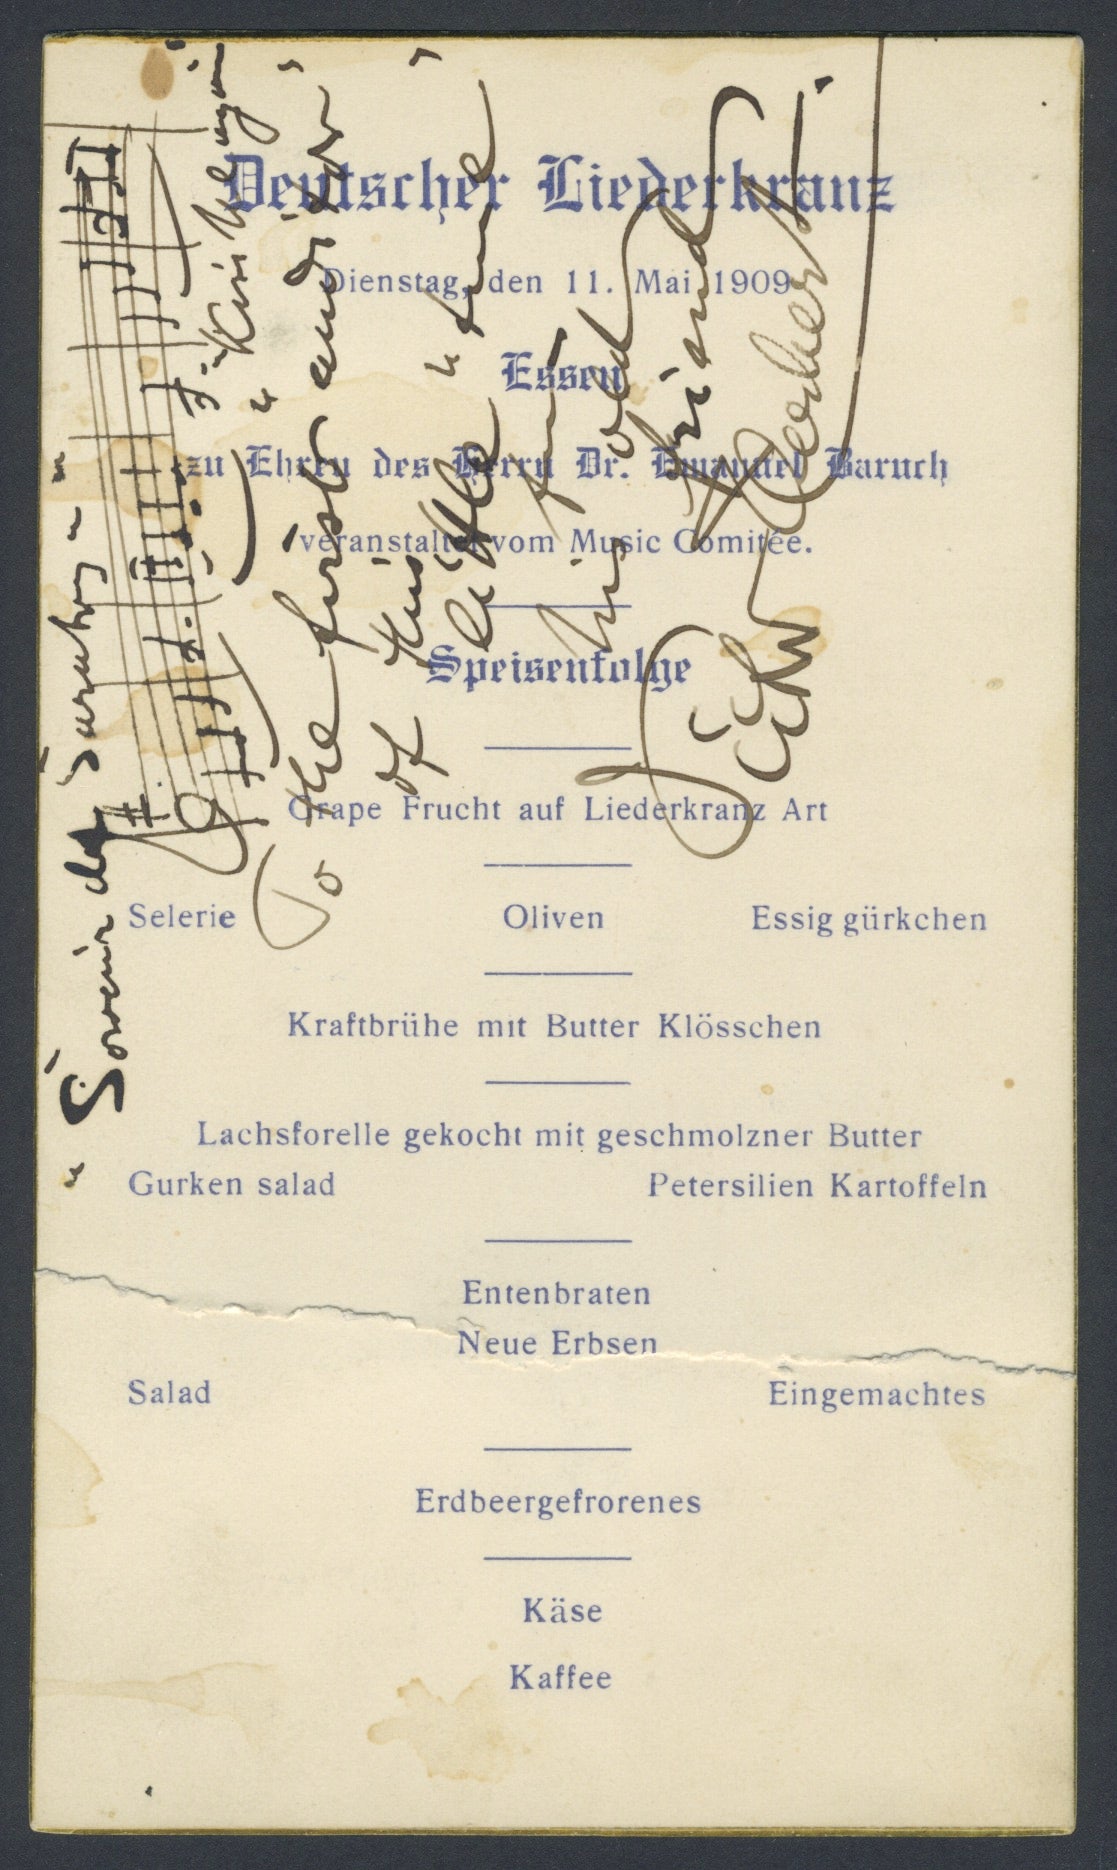 Deutscher Liederkranz
Dienstag, den 11. Mai 1909
Essen
zu Ehren des Herrn Dr. Emanuel Baruch
veranstaltet vom Music Comitée.
Speisenfolge
Grape Frucht auf Liederkranz Art
Selerie Oliven Essig gürkchen
Kraftbrühe mit Butter Klösschen
Lachsforelle gekocht mit geschmolzner Butter
Gurken salad Petersilien Kartoffeln
Entenbraten
Neue Erbsen
Salad Eingemachtes
Erdbeergefrorenes
Käse
Kaffee
"Souvenir de Saratoga"
To the first "auditor"
of this
little "tune"
his old
friend
Herbert.